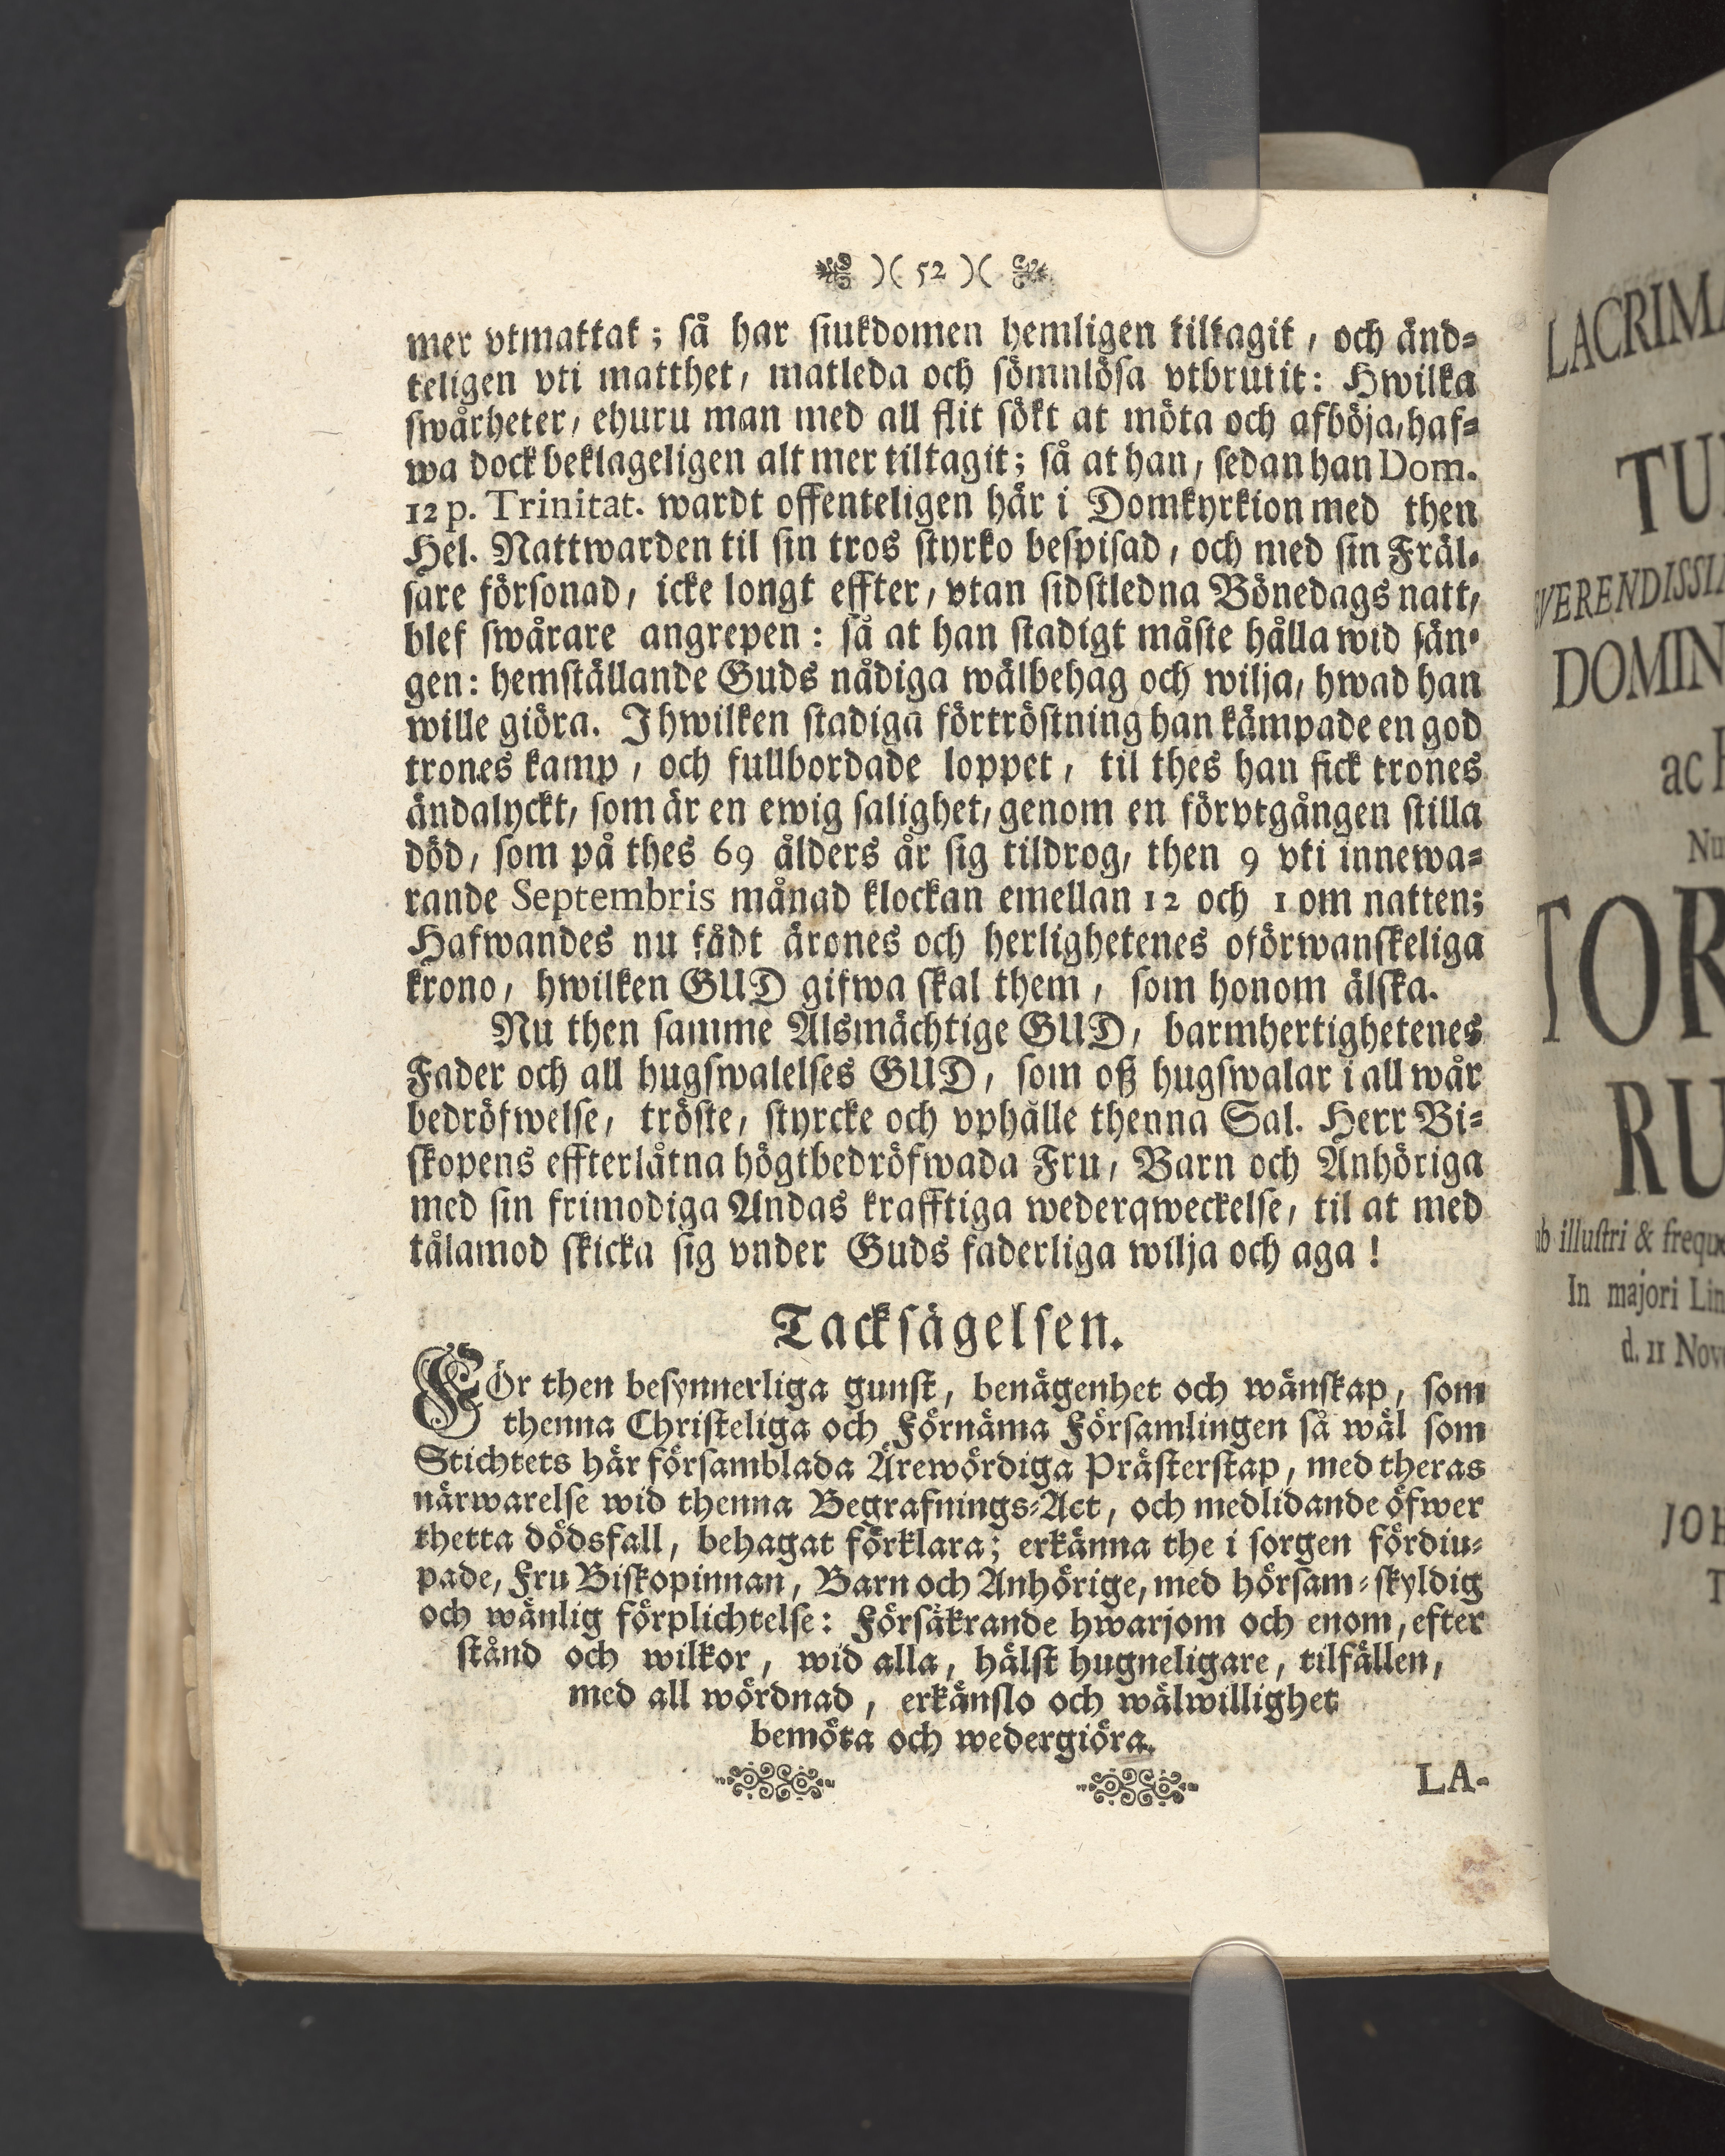 )( 52 )(
mer vtmattat; så har siukdomen hemligen tiltagit, och änd-
teligen vti matthet, matleda och sömnlösa vtbrutit: Hwilka
swårheter, ehuru man med all flit sökt at möta och afböja, haf-
wa dock beklageligen alt mer tiltagit; så at han, sedan han Dom.
12 p. Trinitat. wardt offenteligen här i Domkyrkion med then
Hel. Nattwarden til sin tros styrko bespisad, och med sin Fräl-
sare försonad, icke longt effter, vtan sidstledna Bönedags natt,
blef swårare angrepen: så at han stadigt måste hålla wid sän-
gen: hemställande Guds nådiga wälbehag och wilja, hwad han
wille giöra. I hwilken stadiga förtröstning han kämpade en god
trones kamp, och fullbordade loppet, til thes han fick trones
ändalyckt, som är en ewig salighet, genom en förvtgången stilla
död, som på thes 69 ålders år sig tildrog, then 9 vti innewa-
rande Septembris månad klockan emellan 12 och 1 om natten;
Hafwandes nu fådt ärones och herlighetenes oförwanskeliga
krono, hwilken GUD gifwa skal them, som honom älska.
Nu then samme Alsmächtige GUD, barmhertighetenes
Fader och all hugswalelses GUD, som oß hugswalar i all wår
bedröfwelse, tröste, styrcke och vphålle thenna Sal. Herr Bi-
skopens effterlåtna högtbedröfwada Fru, Barn och Anhöriga
med sin frimodiga Andas krafftiga wederqweckelse, til at med
tålamod skicka sig vnder Guds faderliga wilja och aga!
Tacksägelsen.
För then besynnerliga gunst, benägenhet och wänskap, som
thenna Christeliga och Förnäma Församlingen så wäl som
Stichtets här församblada Ärewördiga Prästerskap, med theras
närwarelse wid thenna Begrafnings-Act, och medlidande öfwer
thetta dödsfall, behagat förklara; erkänna the i sorgen fördiu-
pade, Fru Biskopinnan, Barn och Anhörige, med hörsam-skyldig
och wänlig förplichtelse: Försäkrande hwarjom och enom, efter
stånd och wilkor, wid alla, hälst hugneligare, tilfällen,
med all wördnad, erkänslo och wälwillighet
bemöta och wedergiöra.
LA-
LACRIMA
TU
VERENDISSI
DOMIN
ac
Nu
TOR
RU
ub illustri & frequ
In majori Lin
d. 11 Nov
JOH
T